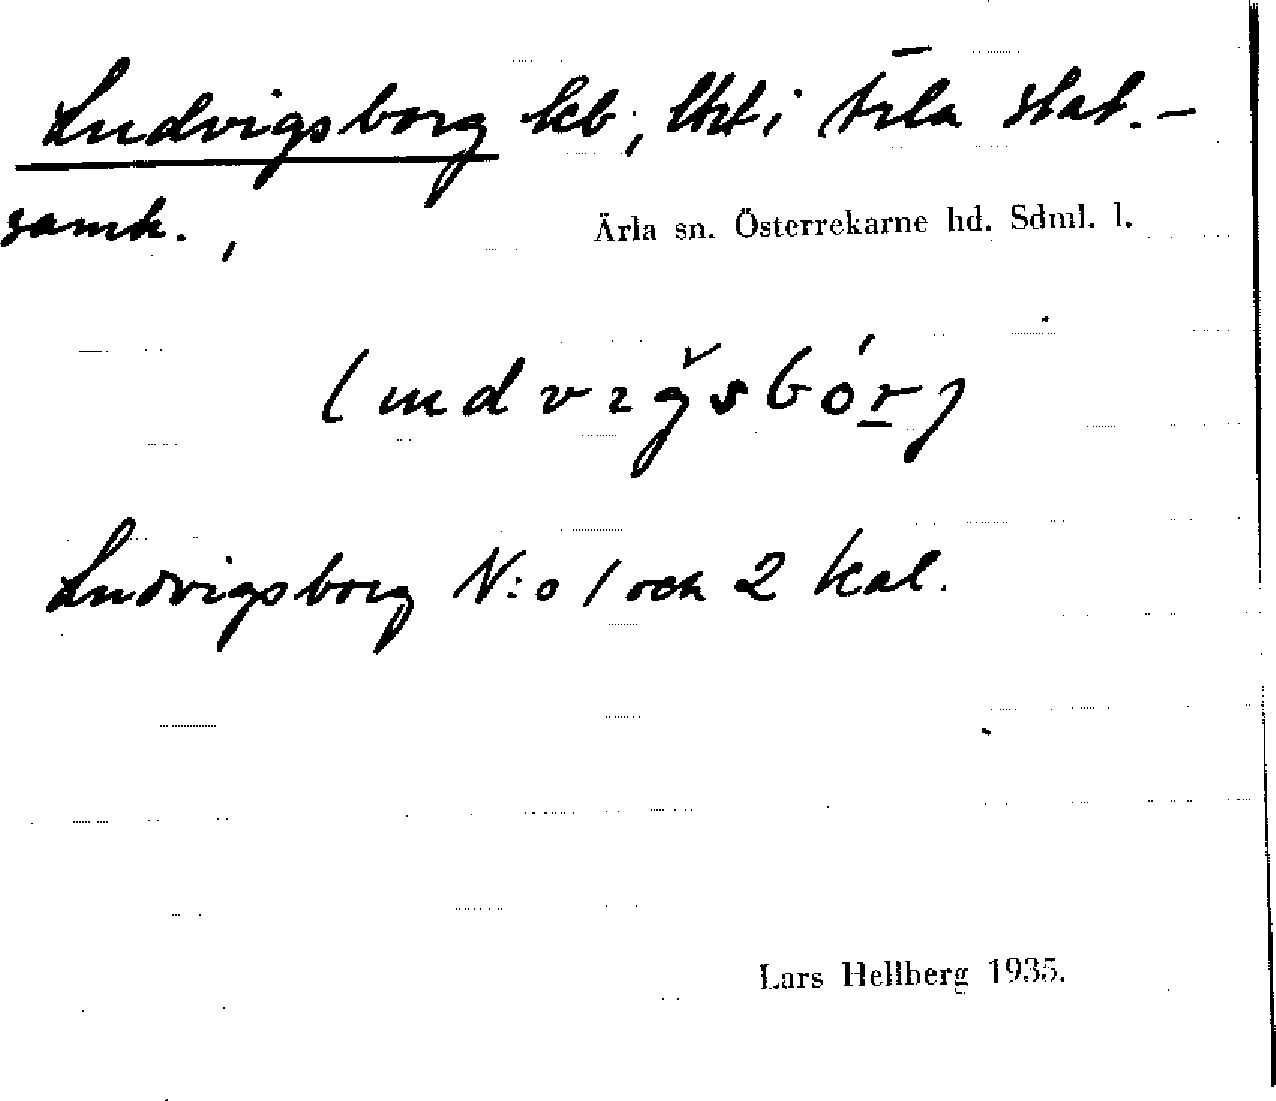 Ludvigsborg lb; lht i Ärla stat.-
samh.,
Ärla sn. Österrekarne hd. Sdml. l.
Ludvigsborg N:o 1 och 2 kal.
Lars Hellberg 1935.